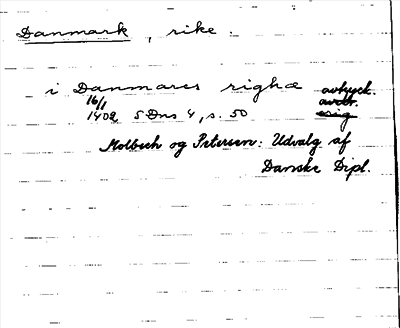 Danmark, rike.
i Danmarcs righæ avtryck.
16/1
1402 5 Dns 4, s. 50
Molbech og Petersen: Udvalg af
Danske Dipl.